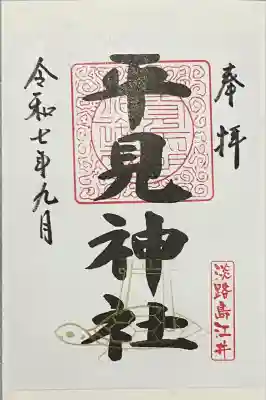 奉拝
平見神社
令和七年九月
淡路島江井